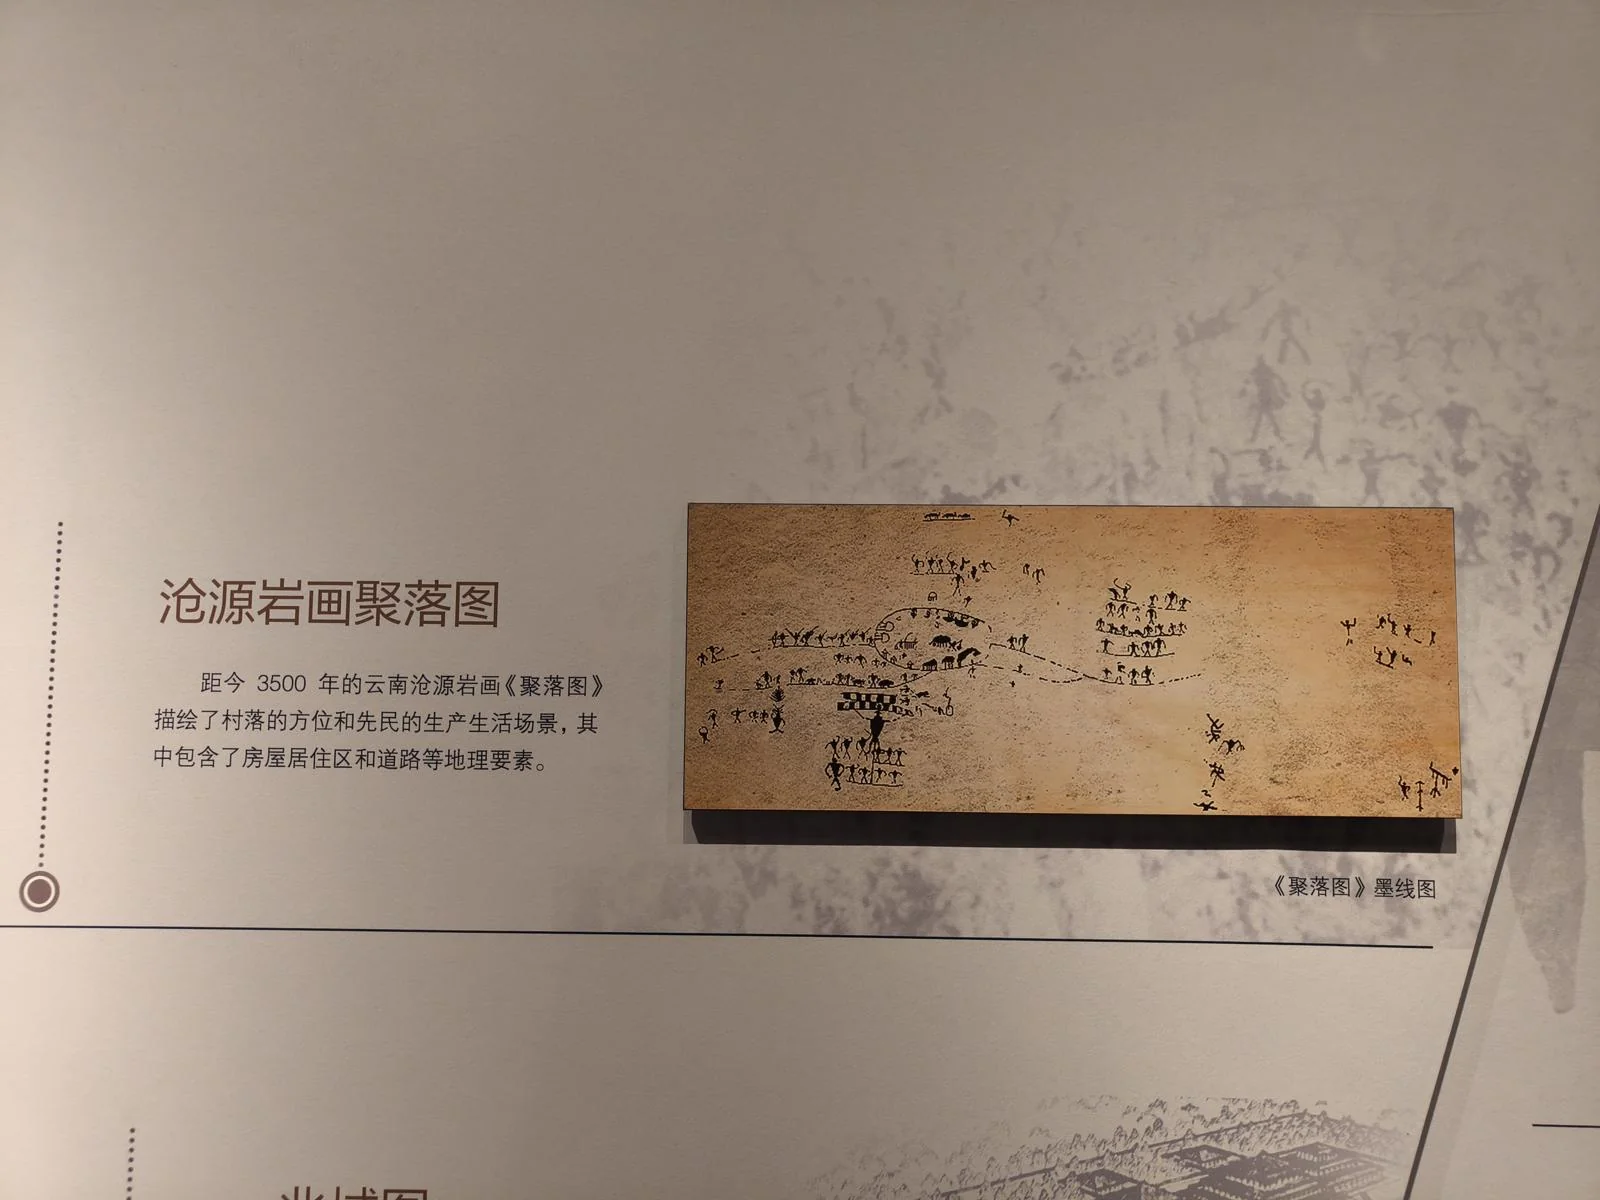 沧源岩画聚落图
距今 3500 年的云南沧源岩画《聚落图》
描绘了村落的方位和先民的生产生活场景，其
中包含了房屋居住区和道路等地理要素。
《聚落图》墨线图